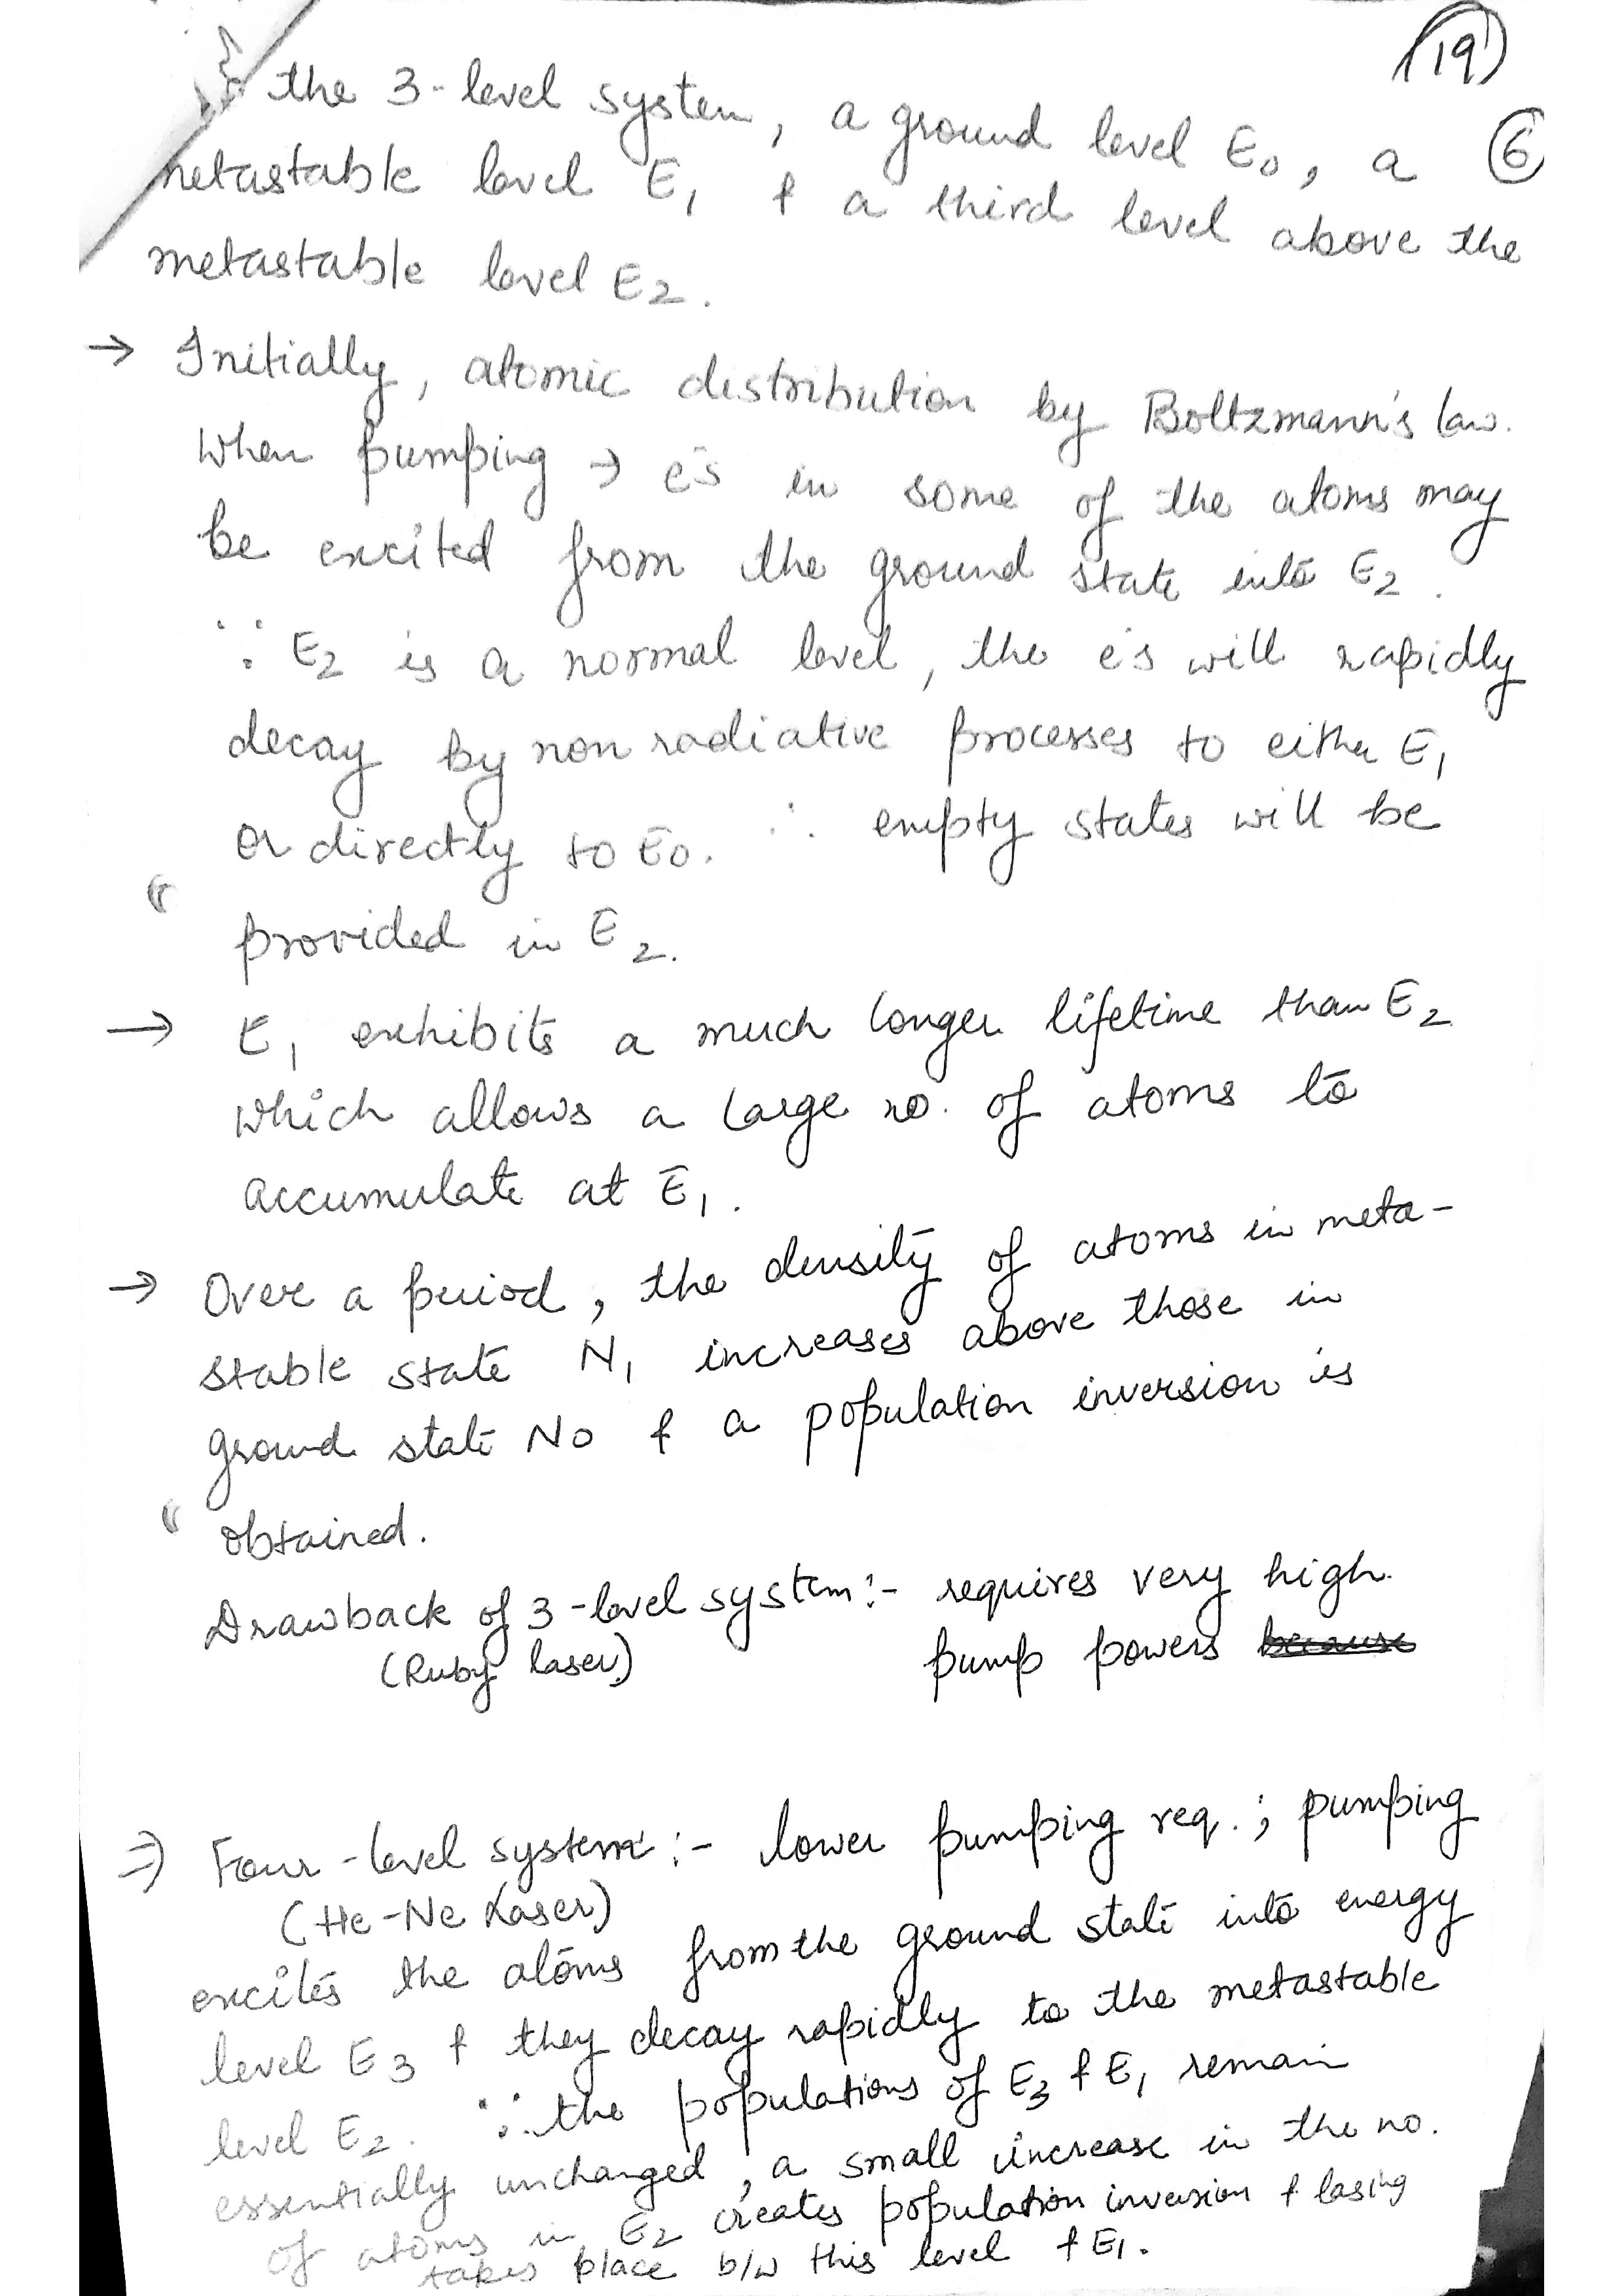 (19)
the 3-level system, a ground level E₀, a (6)
metastable level E₁ & a third level above the
metastable level E₂.
→ Initially, atomic distribution by Boltzmann's law.
When pumping → e⁻s in some of the atoms may
be excited from the ground state into E₂.
∵ E₂ is a normal level, the e⁻s will rapidly
decay by non radiative processes to either E₁
or directly to E₀. ∴ empty states will be
provided in E₂.
→ E₁ exhibits a much longer lifetime than E₂
which allows a large no. of atoms to
accumulate at E₁.
→ Over a period, the density of atoms in meta-
stable state N₁ increases above those in
ground state N₀ & a population inversion is
obtained.
Drawback of 3-level system:- requires very high
(Ruby laser) pump powers because
⇒ Four-level system:- lower pumping req.; pumping
(He-Ne Laser)
excites the atoms from the ground state into energy
level E₃ & they decay rapidly to the metastable
level E₂. ∵ the populations of E₃ & E₁ remain
essentially unchanged, a small increase in the no.
of atoms in E₂ creates population inversion & lasing
takes place b/w this level & E₁.